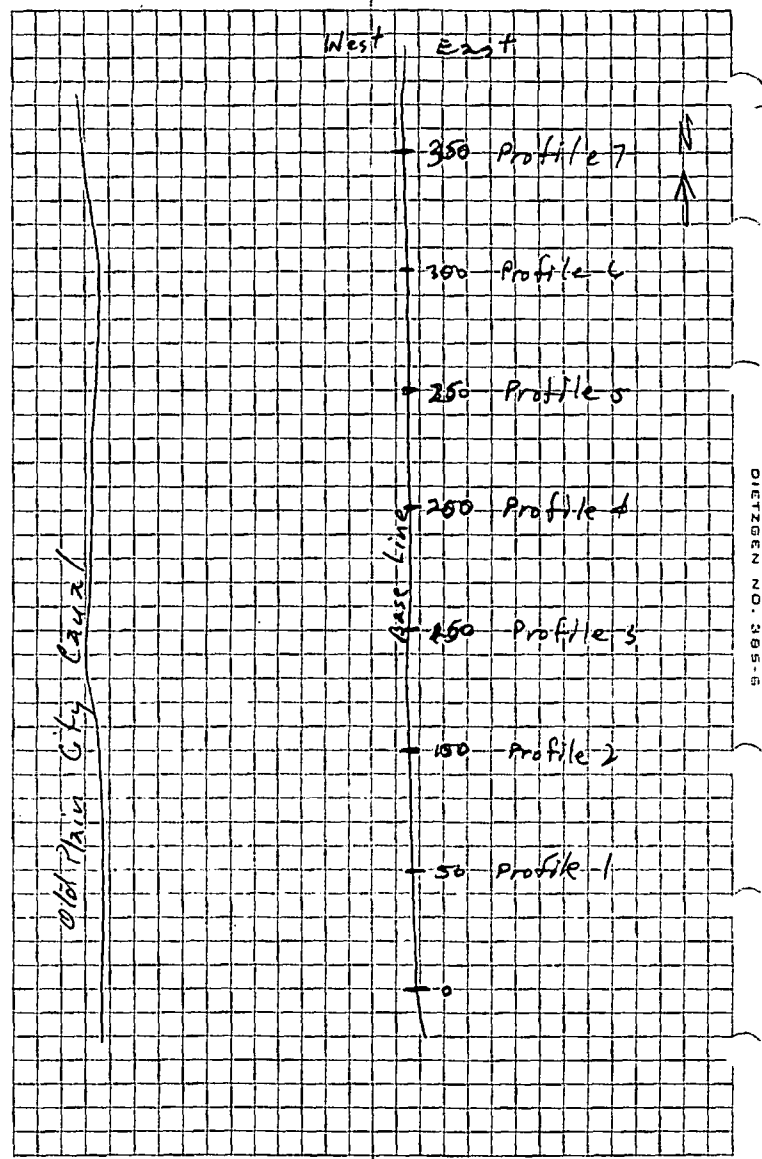 West East
N
350 Profile 7
300 Profile 6
250 Profile 5
200 Profile 4
Base Line
150 Profile 3
100 Profile 2
50 Profile 1
0
Old Plain City Canal
DIETZGEN NO. 385-G